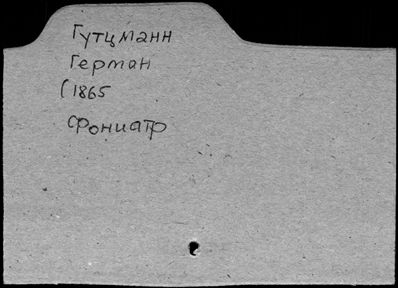 Гутцманн
Герман
(1865
Фониатр